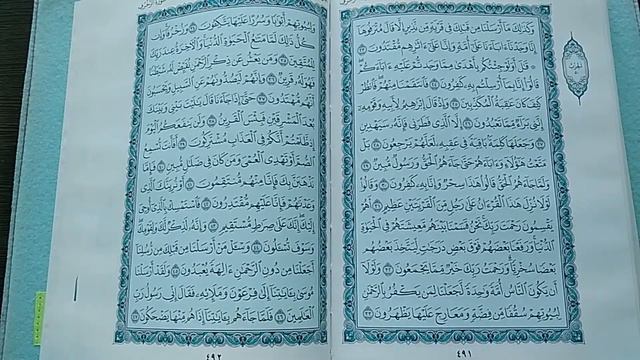 وَكَذَٰلِكَ مَآ أَرْسَلْنَا مِن قَبْلِكَ فِى قَرْيَةٍ مِّن نَّذِيرٍ إِلَّا قَالَ مُتْرَفُوهَآ
إِنَّا وَجَدْنَآ ءَابَآءَنَا عَلَىٰٓ أُمَّةٍ وَإِنَّا عَلَىٰٓ ءَاثَٰرِهِم مُّقْتَدُونَ ٢٣
۞ قَٰلَ أَوَلَوْ جِئْتُكُم بِأَهْدَىٰ مِمَّا وَجَدتُّمْ عَلَيْهِ ءَابَآءَكُمْ
قَالُوٓا۟ إِنَّا بِمَآ أُرْسِلْتُم بِهِۦ كَٰفِرُونَ ٢٤ فَٱنتَقَمْنَا مِنْهُمْ فَٱنظُرْ
كَيْفَ كَانَ عَٰقِبَةُ ٱلْمُكَذِّبِينَ ٢٥ وَإِذْ قَالَ إِبْرَٰهِيمُ لِأَبِيهِ وَقَوْمِهِۦٓ
إِنَّنِى بَرَآءٌ مِّمَّا تَعْبُدُونَ ٢٦ إِلَّا ٱلَّذِى فَطَرَنِى فَإِنَّهُۥ سَيَهْدِينِ
٢٧ وَجَعَلَهَا كَلِمَةًۢ بَاقِيَةً فِى عَقِبِهِۦ لَعَلَّهُمْ يَرْجِعُونَ ٢٨ بَلْ
مَتَّعْتُ هَٰٓؤُلَآءِ وَءَابَآءَهُمْ حَتَّىٰ جَآءَهُمُ ٱلْحَقُّ وَرَسُولٌ مُّبِينٌ ٢٩
وَلَمَّا جَآءَهُمُ ٱلْحَقُّ قَالُوا۟ هَٰذَا سِحْرٌ وَإِنَّا بِهِۦ كَٰفِرُونَ ٣٠ وَقَالُوا۟
لَوْلَا نُزِّلَ هَٰذَا ٱلْقُرْءَانُ عَلَىٰ رَجُلٍ مِّنَ ٱلْقَرْيَتَيْنِ عَظِيمٍ ٣١ أَهُمْ
يَقْسِمُونَ رَحْمَتَ رَبِّكَ نَحْنُ قَسَمْنَا بَيْنَهُم مَّعِيشَتَهُمْ فِى ٱلْحَيَوٰةِ
ٱلدُّنْيَا وَرَفَعْنَا بَعْضَهُمْ فَوْقَ بَعْضٍ دَرَجَٰتٍ لِّيَتَّخِذَ بَعْضُهُم
بَعْضًا سُخْرِيًّا وَرَحْمَتُ رَبِّكَ خَيْرٌ مِّمَّا يَجْمَعُونَ ٣٢ وَلَوْلَآ
أَن يَكُونَ ٱلنَّاسُ أُمَّةً وَٰحِدَةً لَّجَعَلْنَا لِمَن يَكْفُرُ بِٱلرَّحْمَٰنِ
لِبُيُوتِهِمْ سُقُفًا مِّن فِضَّةٍ وَمَعَارِجَ عَلَيْهَا يَظْهَرُونَ ٣٣
٤٩١
وَلِبُيُوتِهِمْ أَبْوَٰبًا وَسُرُرًا عَلَيْهَا يَتَّكِـُٔونَ ٣٤ وَزُخْرُفًا وَإِن
كُلُّ ذَٰلِكَ لَمَّا مَتَٰعُ ٱلْحَيَوٰةِ ٱلدُّنْيَا وَٱلْءَاخِرَةُ عِندَ رَبِّكَ
لِلْمُتَّقِينَ ٣٥ وَمَن يَعْشُ عَن ذِكْرِ ٱلرَّحْمَٰنِ نُقَيِّضْ لَهُۥ شَيْطَٰنًا
فَهُوَ لَهُۥ قَرِينٌ ٣٦ وَإِنَّهُمْ لَيَصُدُّونَهُمْ عَنِ ٱلسَّبِيلِ وَيَحْسَبُونَ
أَنَّهُم مُّهْتَدُونَ ٣٧ حَتَّىٰٓ إِذَا جَآءَنَا قَالَ يَٰلَيْتَ بَيْنِى وَبَيْنَكَ
بُعْدَ ٱلْمَشْرِقَيْنِ فَبِئْسَ ٱلْقَرِينُ ٣٨ وَلَن يَنفَعَكُمُ ٱلْيَوْمَ
إِذ ظَّلَمْتُمْ أَنَّكُمْ فِى ٱلْعَذَابِ مُشْتَرِكُونَ ٣٩ أَفَأَنتَ تُسْمِعُ
ٱلصُّمَّ أَوْ تَهْدِى ٱلْعُمْىَ وَمَن كَانَ فِى ضَلَٰلٍ مُّبِينٍ ٤٠ فَإِمَّا
نَذْهَبَنَّ بِكَ فَإِنَّا مِنْهُم مُّنتَقِمُونَ ٤١ أَوْ نُرِيَنَّكَ ٱلَّذِى
وَعَدْنَٰهُمْ فَإِنَّا عَلَيْهِم مُّقْتَدِرُونَ ٤٢ فَٱسْتَمْسِكْ بِٱلَّذِىٓ أُوحِىَ
إِلَيْكَ إِنَّكَ عَلَىٰ صِرَٰطٍ مُّسْتَقِيمٍ ٤٣ وَإِنَّهُۥ لَذِكْرٌ لَّكَ وَلِقَوْمِكَ
وَسَوْفَ تُسْـَٔلُونَ ٤٤ وَسْـَٔلْ مَنْ أَرْسَلْنَا مِن قَبْلِكَ مِن رُّسُلِنَآ
أَجَعَلْنَا مِن دُونِ ٱلرَّحْمَٰنِ ءَالِهَةً يُعْبَدُونَ ٤٥ وَلَقَدْ أَرْسَلْنَا
مُوسَىٰ بِـَٔايَٰتِنَآ إِلَىٰ فِرْعَوْنَ وَمَلَإِي۟هِۦ فَقَالَ إِنِّى رَسُولُ رَبِّ
ٱلْعَٰلَمِينَ ٤٦ فَلَمَّا جَآءَهُم بِـَٔايَٰتِنَآ إِذَا هُم مِّنْهَا يَضْحَكُونَ ٤٧
٤٩٢